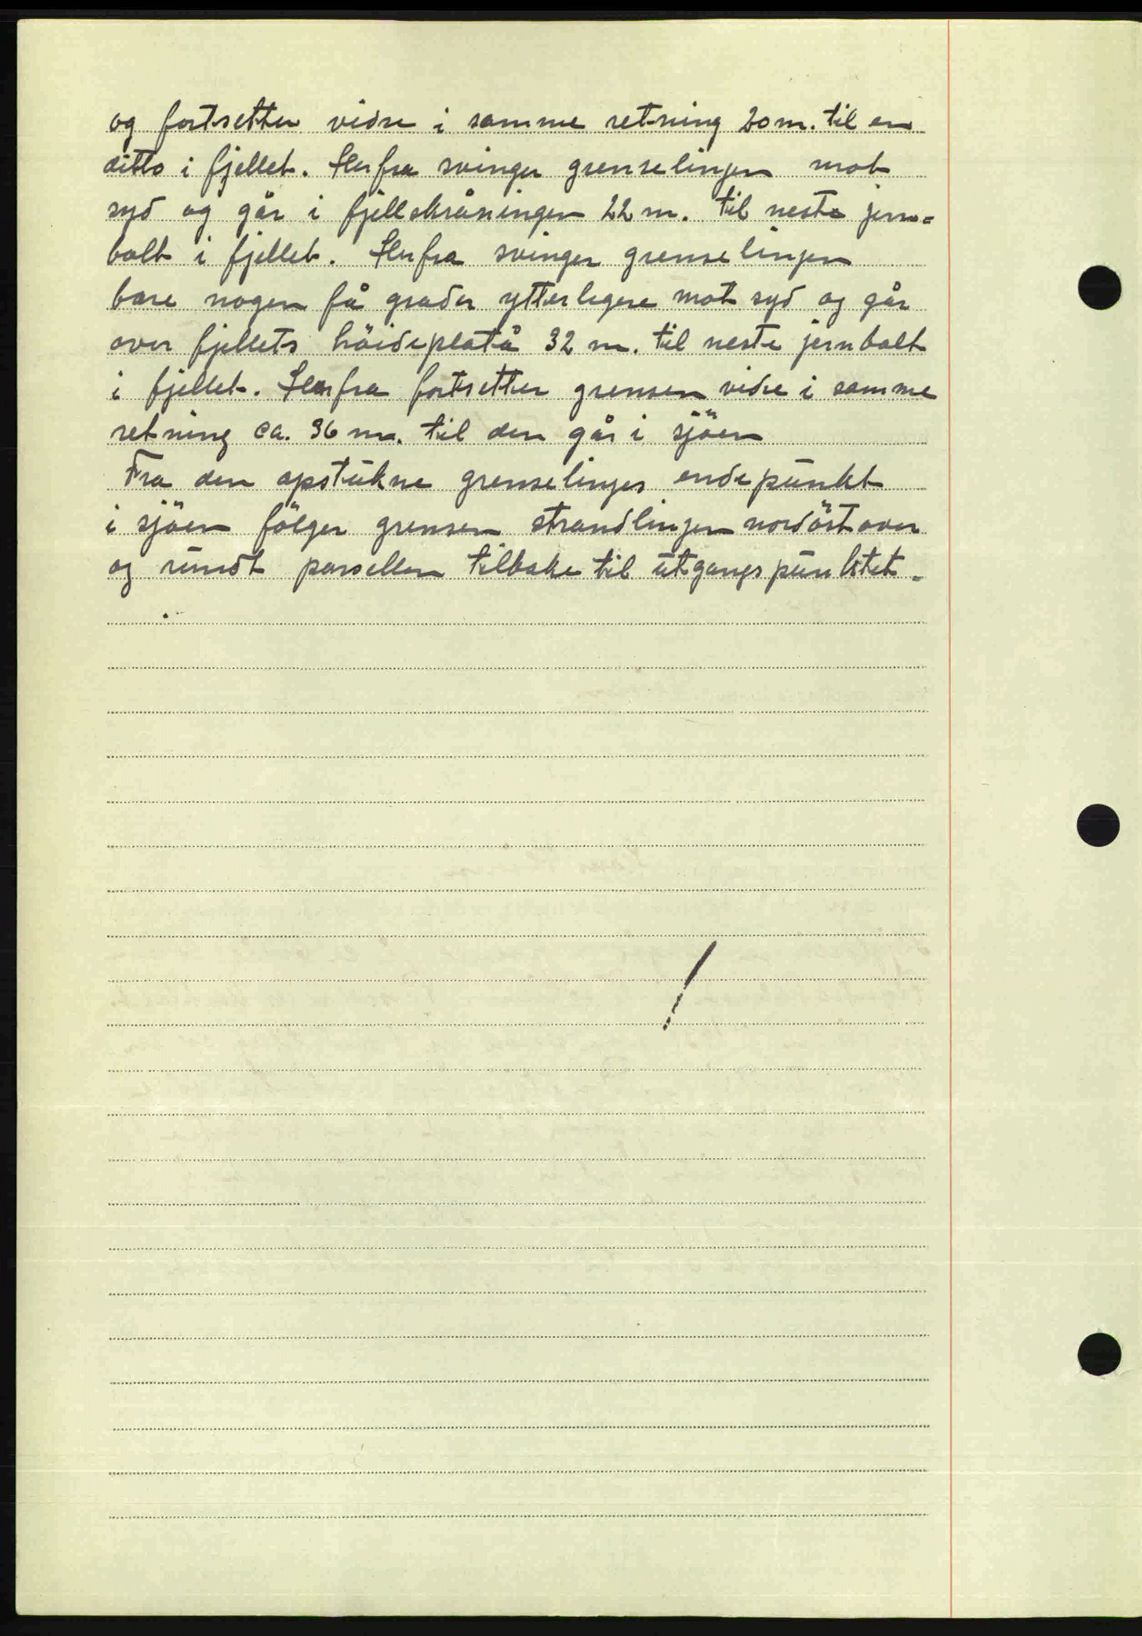 og fortsetter vidre i samme retning 20 m. til en
ditto i fjellet. Herfra svinger grenselinjen mot
syd og går i fjellskråningen 22 m. til neste jern=
bolt i fjellet. Herfra svinger grenselinjen
bare nogen få grader ytterligere mot syd og går
over fjellets höideplatå 32 m. til neste jernbolt
i fjellet. Herfra fortsetter grensen vidre i samme
retning ca. 36 m. til den går i sjöen
Fra den opstukne grenselinjes endepunkt
i sjöen fölger grensen strandlinjen nordöstover
og rundt parsellen tilbake til utgangspunktet.